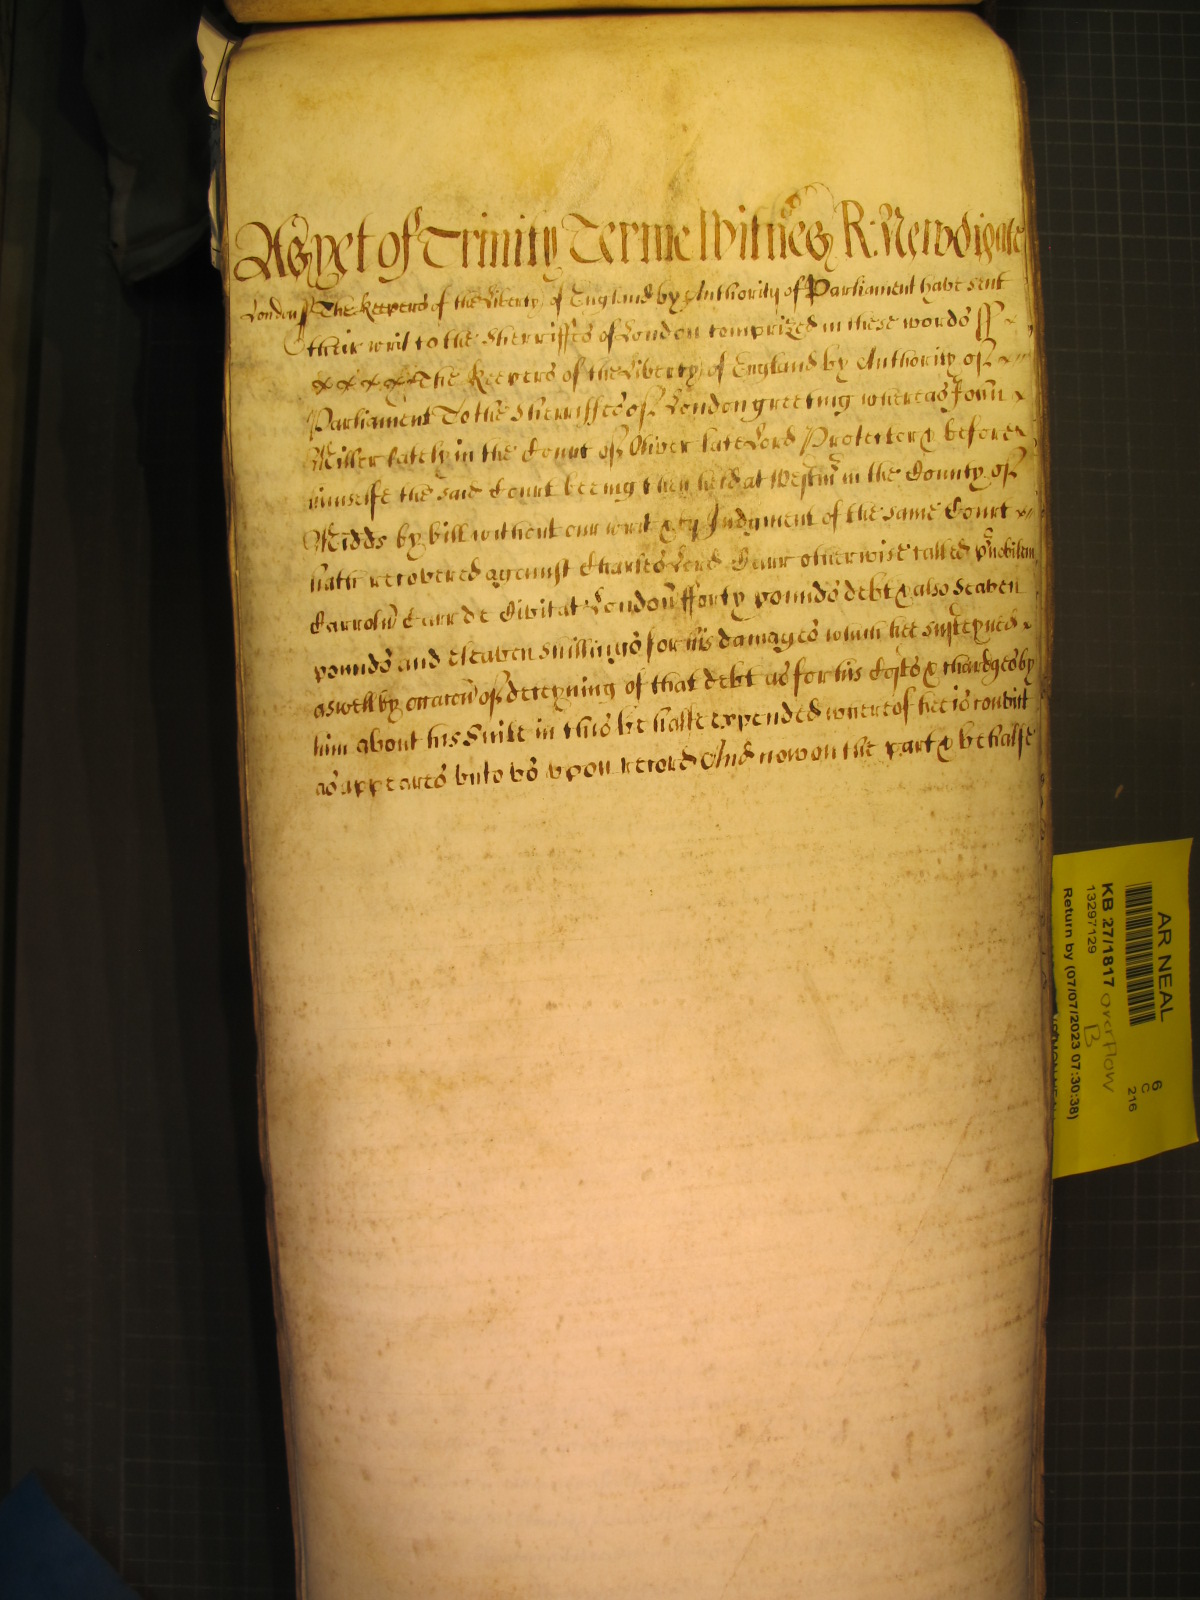 As yet of Trinity Terme Witnes R: Newdigate
London ss The Keepers of the Liberty of England by Authority of Parliament have sent
their writ to the Sherriffes of London comprized in these words ss
The Keepers of the Liberty of England by Authority of
Parliament To the Sherriffes of London greeting whereas John
Miller lately in the Court of Oliver late Lord Protector & before
himselfe the said Court beeing then held at Westm in the County of
Midds by bill without our writ & by Judgment of the same Court
hath recovered against Charles Lord Carr otherwise called
Carrolu Carr de Civitat London fforty pounds debt & also seaven
pounds and eleaven shillings for his damages which hee susteyned
aswell by occacon of deteyning of that debt as for his Costs & chardges by
him about his Suite in this behalfe expended whereof hee is convict
as appeares unto us upon record And now on the part & behalfe
AR NEAL
KB 27/1817 overflow
B
13297129
Return by (07/07/2023 07:30:38)
6
C
216